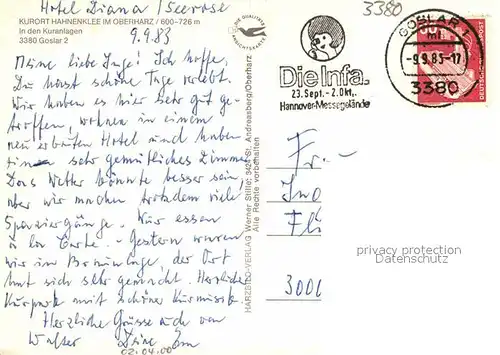 Hotel Diana / Seerose
KURORT HAHNENKLEE IM OBERHARZ / 600-726 m
In den Kuranlagen
3380 Goslar 2
9.9.83
Meine liebe Inge! Ich hoffe,
Du hast schöne Tage verlebt.
Wir haben es hier sehr gut ge-
troffen, wohnen in einem
neu erbauten Hotel und haben
ein sehr gemütliches Zimmer
Das Wetter könnte besser sein,
aber wir machen trotzdem viele
Spaziergänge. Wir essen
à la Carte. - Gestern waren
wir in Braunlage, der Ort
hat sich sehr gemacht. Herrlicher
Kurpark mit schöner Kurmusik.
Herzliche Grüsse auch von
Walter Deine
02.04.00
DIE QUALITÄTS ANSICHTSKARTE
HARZBILD-VERLAG Werner Stille, 3424 St. Andreasberg/Oberharz
Alle Rechte vorbehalten
3380
Die Infa.
23. Sept. - 2. Okt.,
Hannover-Messegelände
GOSLAR 1
mi
- 9.9.83 - 17
3380
DEUTSCHE BUNDESPOST
Fr. -
3000
privacy protection
Datenschutz